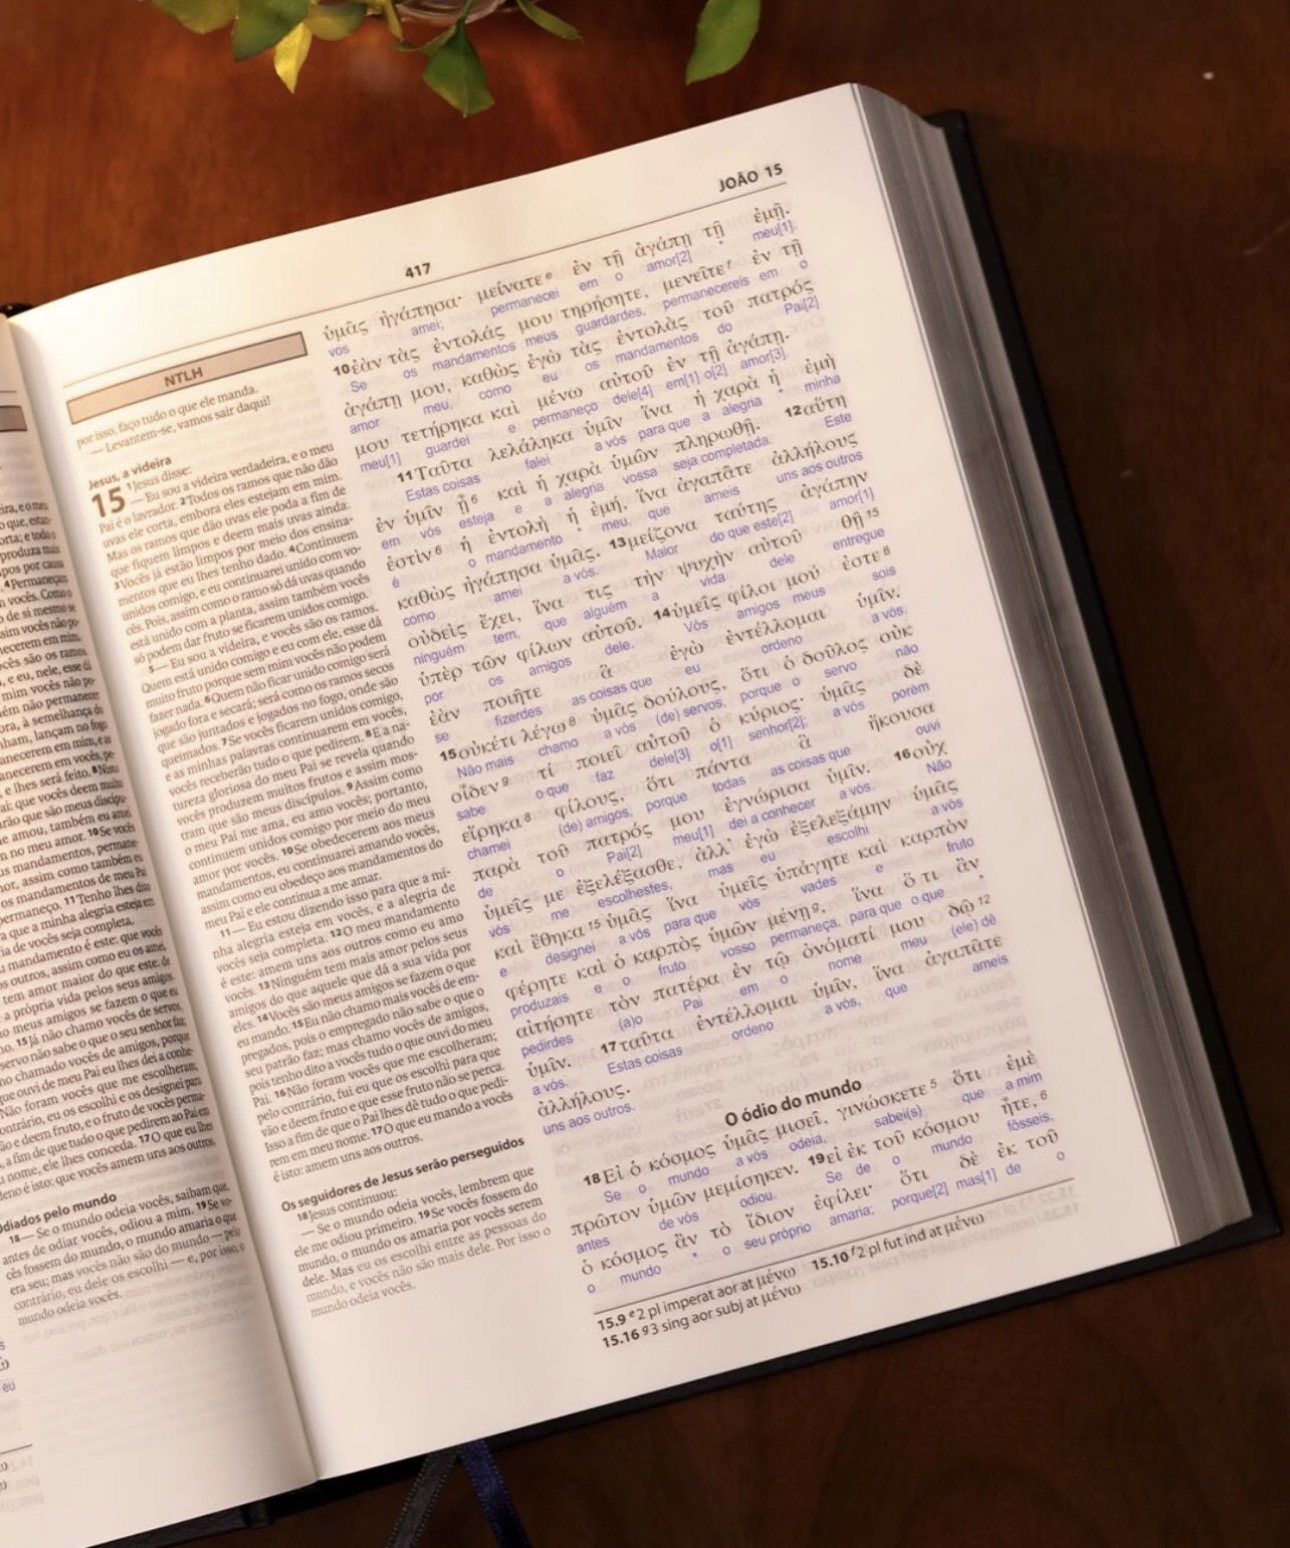 JOÃO 15
417
NTLH
por isso, faço tudo o que ele manda.
— Levantem-se, vamos sair daqui!
Jesus, a videira
15 1Jesus disse:
— Eu sou a videira verdadeira, e o meu
Pai é o lavrador. 2Todos os ramos que não dão
uvas ele corta, embora eles estejam em mim.
Mas os ramos que dão uvas ele poda a fim de
que fiquem limpos e deem mais uvas ainda.
3Vocês já estão limpos por meio dos ensina-
mentos que eu lhes tenho dado. 4Continuem
unidos comigo, e eu continuarei unido com vo-
cês. Pois, assim como o ramo só dá uvas quando
está unido com a planta, assim também vocês
só podem dar fruto se ficarem unidos comigo.
5— Eu sou a videira, e vocês são os ramos.
Quem está unido comigo e eu com ele, esse dá
muito fruto porque sem mim vocês não podem
fazer nada. 6Quem não ficar unido comigo será
jogado fora e secará; será como os ramos secos
que são juntados e jogados no fogo, onde são
queimados. 7Se vocês ficarem unidos comigo,
e as minhas palavras continuarem em vocês,
vocês receberão tudo o que pedirem. 8E a na-
tureza gloriosa do meu Pai se revela quando
vocês produzem muitos frutos e assim mos-
tram que são meus discípulos. 9Assim como
o meu Pai me ama, eu amo vocês; portanto,
continuem unidos comigo por meio do meu
amor por vocês. 10Se obedecerem aos meus
mandamentos, eu continuarei amando vocês,
assim como eu obedeço aos mandamentos do
meu Pai e ele continua a me amar.
11— Eu estou dizendo isso para que a mi-
nha alegria esteja em vocês, e a alegria de
vocês seja completa. 12O meu mandamento
é este: amem uns aos outros como eu amo
vocês. 13Ninguém tem mais amor pelos seus
amigos do que aquele que dá a sua vida por
eles. 14Vocês são meus amigos se fazem o que
eu mando. 15Eu não chamo mais vocês de em-
pregados, pois o empregado não sabe o que o
seu patrão faz; mas chamo vocês de amigos,
pois tenho dito a vocês tudo o que ouvi do meu
Pai. 16Não foram vocês que me escolheram;
pelo contrário, fui eu que os escolhi para que
vão e deem fruto e que esse fruto não se perca.
Isso a fim de que o Pai lhes dê tudo o que pedi-
rem em meu nome. 17O que eu mando a vocês
é isto: amem uns aos outros.
Os seguidores de Jesus serão perseguidos
18Jesus continuou:
— Se o mundo odeia vocês, lembrem que
ele me odiou primeiro. 19Se vocês fossem do
mundo, o mundo os amaria por vocês serem
dele. Mas eu os escolhi entre as pessoas do
mundo, e vocês não são mais dele. Por isso o
mundo odeia vocês.
ὑμᾶς ἠγάπησα· μείνατε e ἐν τῇ ἀγάπῃ τῇ ἐμῇ.
vos amei; permanecei em o amor[2] * meu[1].
10ἐὰν τὰς ἐντολάς μου τηρήσητε, μενεῖτε f ἐν τῇ
Se os mandamentos meus guardardes, permanecereis em o
ἀγάπῃ μου, καθὼς ἐγὼ τὰς ἐντολὰς τοῦ πατρός
amor meu, como eu os mandamentos do Pai[2]
μου τετήρηκα καὶ μένω αὐτοῦ ἐν τῇ ἀγάπῃ.
meu[1] guardei e permaneço dele[4] em[1] o[2] amor[3].
11Ταῦτα λελάληκα ὑμῖν ἵνα ἡ χαρὰ ἡ ἐμὴ
Estas coisas falei a vós para que a alegria * minha
ἐν ὑμῖν ᾖ 6 καὶ ἡ χαρὰ ὑμῶν πληρωθῇ. 12αὕτη
em vós esteja e a alegria vossa seja completada. Este
ἐστὶν 6 ἡ ἐντολὴ ἡ ἐμή, ἵνα ἀγαπᾶτε ἀλλήλους
é o mandamento * meu, que ameis uns aos outros
καθὼς ἠγάπησα ὑμᾶς. 13μείζονα ταύτης ἀγάπην
como amei a vós. Maior do que este[2] amor[1]
οὐδεὶς ἔχει, ἵνα τις τὴν ψυχὴν αὐτοῦ θῇ 15
ninguém tem, que alguém a vida dele entregue
ὑπὲρ τῶν φίλων αὐτοῦ. 14ὑμεῖς φίλοι μού ἐστε 8
por os amigos dele. Vós amigos meus sois
ἐὰν ποιῆτε ἃ ἐγὼ ἐντέλλομαι ὑμῖν.
se fizerdes as coisas que eu ordeno a vós.
15οὐκέτι λέγω 8 ὑμᾶς δούλους, ὅτι ὁ δοῦλος οὐκ
Não mais chamo a vós (de) servos, porque o servo não
οἶδεν 9 τί ποιεῖ αὐτοῦ ὁ κύριος· ὑμᾶς δὲ
sabe o que faz dele[3] o[1] senhor[2]; a vós porém
εἴρηκα 8 φίλους, ὅτι πάντα ἃ ἤκουσα
chamei (de) amigos, porque todas as coisas que ouvi
παρὰ τοῦ πατρός μου ἐγνώρισα ὑμῖν. 16οὐχ
de o Pai[2] meu[1] dei a conhecer a vós. Não
ὑμεῖς με ἐξελέξασθε, ἀλλ᾽ ἐγὼ ἐξελεξάμην ὑμᾶς
vós me escolhestes, mas eu escolhi a vós
καὶ ἔθηκα 15 ὑμᾶς ἵνα ὑμεῖς ὑπάγητε καὶ καρπὸν
e designei a vós para que vós vades e fruto
φέρητε καὶ ὁ καρπὸς ὑμῶν μένῃ g, ἵνα ὅ τι ἂν
produzais e o fruto vosso permaneça, para que o que *
αἰτήσητε τὸν πατέρα ἐν τῷ ὀνόματί μου δῷ 12
pedirdes (a)o Pai em o nome meu (ele) dê
ὑμῖν. 17ταῦτα ἐντέλλομαι ὑμῖν, ἵνα ἀγαπᾶτε
a vós. Estas coisas ordeno a vós, que ameis
ἀλλήλους.
uns aos outros.
O ódio do mundo
18Εἰ ὁ κόσμος ὑμᾶς μισεῖ, γινώσκετε 5 ὅτι ἐμὲ
Se o mundo a vós odeia, sabei(s) que a mim
πρῶτον ὑμῶν μεμίσηκεν. 19εἰ ἐκ τοῦ κόσμου ἦτε, 6
antes de vós odiou. Se de o mundo fôsseis,
ὁ κόσμος ἂν τὸ ἴδιον ἐφίλει· ὅτι δὲ ἐκ τοῦ
o mundo * o seu próprio amaria; porque[2] mas[1] de o
15.9 e2 pl imperat aor at μένω 15.10 f2 pl fut ind at μένω
15.16 g3 sing aor subj at μένω